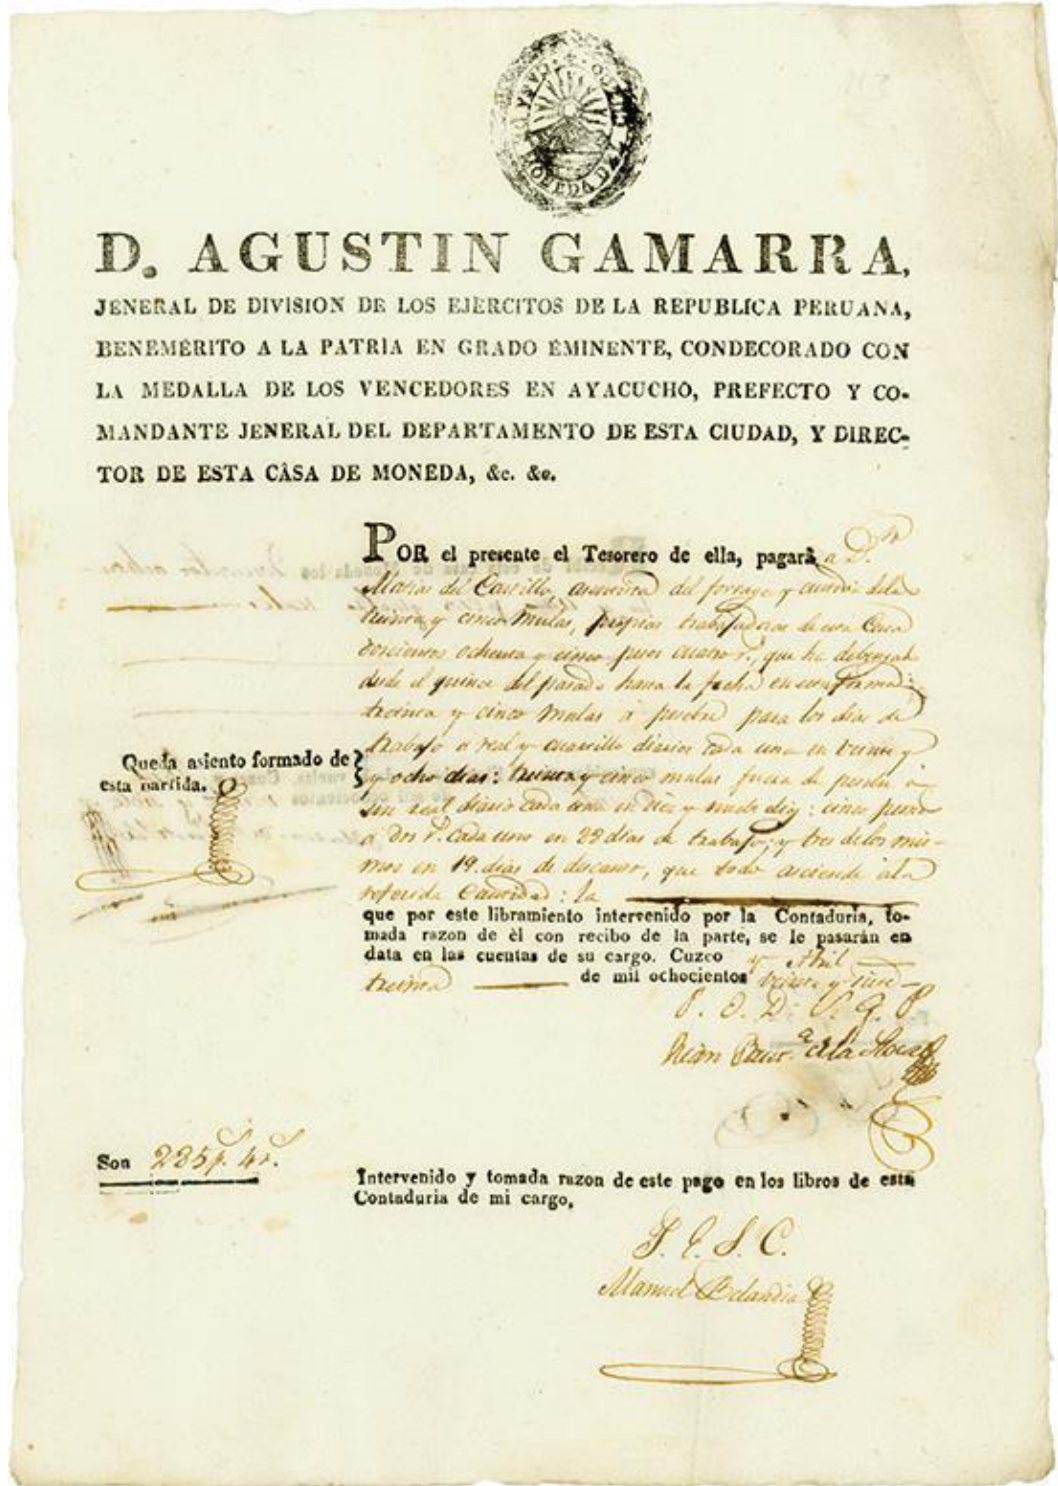 CASA MONEDA DEL CUSCO
D. AGUSTIN GAMARRA,
JENERAL DE DIVISION DE LOS EJERCITOS DE LA REPUBLICA PERUANA,
BENEMÉRITO A LA PATRIA EN GRADO EMINENTE, CONDECORADO CON
LA MEDALLA DE LOS VENCEDORES EN AYACUCHO, PREFECTO Y CO-
MANDANTE JENERAL DEL DEPARTAMENTO DE ESTA CIUDAD, Y DIREC-
TOR DE ESTA CÂSA DE MONEDA, &c. &c.
POR el presente el Tesorero de ella, pagarà a Dn
Matias del Castillo, del forrage y
treinta y cinco Mulas, propias trabajadoras de esa Casa
doscientos ochenta y cinco pesos cuatro r.s, que ha
desde el quince del pasado hasta la fecha en esta forma:
treinta y cinco Mulas á pesebre para los dias de
trabajo a real y cuartillo diarios cada una en veinte y
y ocho dias: treinta y cinco mulas fuera de pesebre á
un real diario cada una en diez y nueve dias: cinco
á dos r.s cada uno en 28 dias de trabajo, y tres de los mis-
mos en 19. dias de descanso, que todo asciende á la
referida Cantidad: la
que por este libramiento intervenido por la Contaduria, to-
mada razon de èl con recibo de la parte, se le pasarán en
data en las cuentas de su cargo. Cuzco y Abril
treinta de mil ochocientos veinte y
Queda asiento formado de
esta partida.
P. O. D. S. G. P.
Juan Baut.a de la
Son 285 p.s 4 r.s
Intervenido y tomada razon de este pago en los libros de esta
Contaduria de mi cargo,
Manuel Belandia